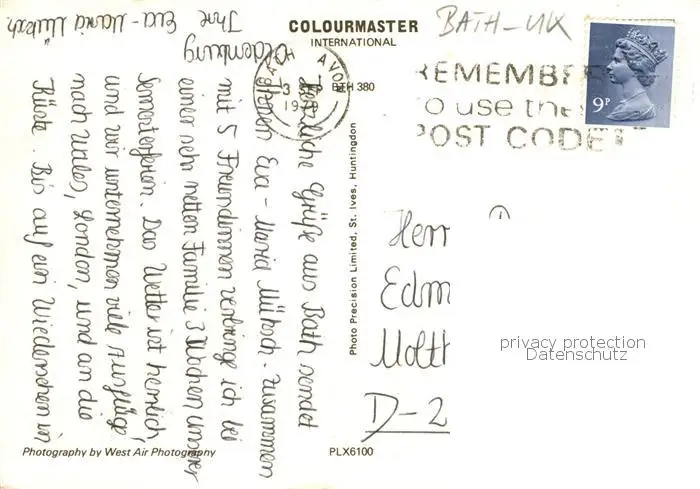 COLOURMASTER
INTERNATIONAL
BATH-UK
BTH 380
AVO
REMEMBE
to use the
POST CODE
9P
Herzliche Grüße aus Bath sendet
Ihnen Eva-Maria
Zusammen
mit 5 Freundinnen verbringe ich bei
einer sehr netten Familie 3 Wochen unserer
Semesterferien. Das Wetter ist herrlich,
und wir unternehmen viele Ausflüge
nach Wales, London, und an die
Küste. Bis auf ein Wiedersehen in
Oldenburg
Ihre Eva-Maria
Photo Precision Limited, St. Ives, Huntingdon
Herr
Edm
Moltk
D-2
privacy protection
Datenschutz
Photography by West Air Photography
PLX6100